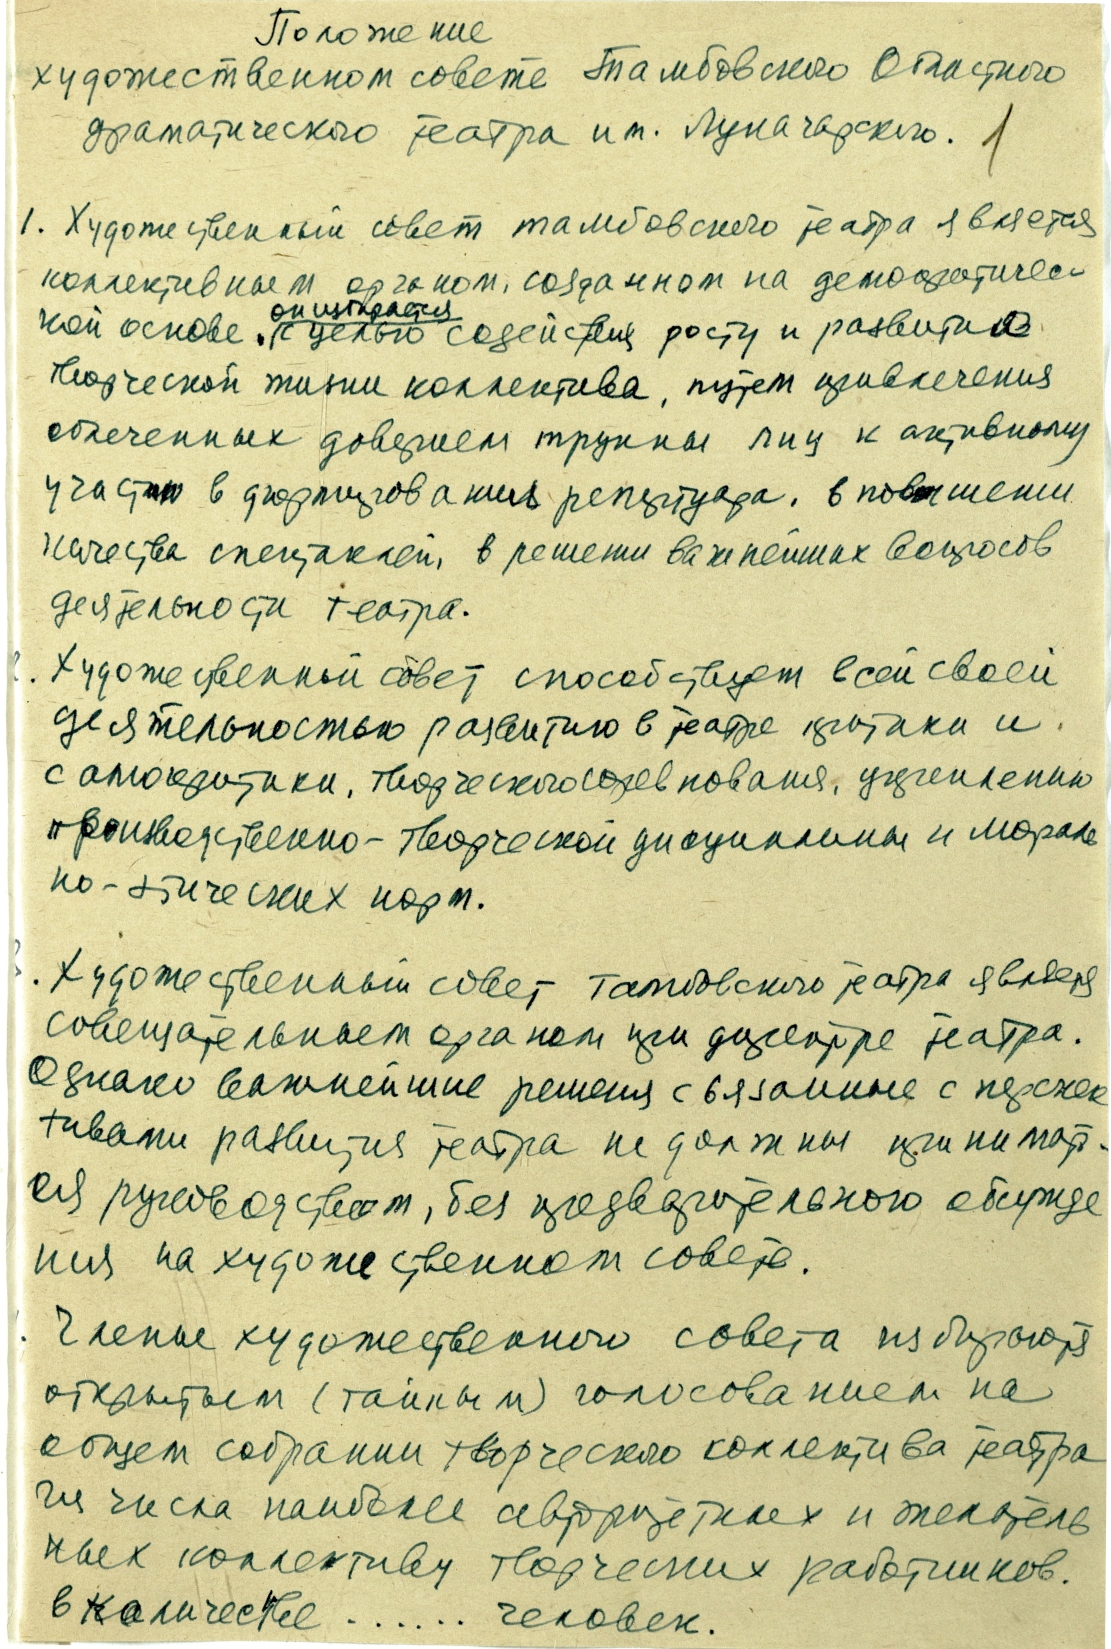 Положение
художественном совете Тамбовского Областного
драматического театра им. Луначарского.
1
1. Художественный совет тамбовского театра является
коллективным органом, созданном на демократичес-
кой основе. он избирается
с целью содействия росту и развитию
творческой жизни коллектива, путем привлечения
облеченных доверием труппы лиц к активному
участию в формировании репертуара, в повышении
качества спектаклей, в решении важнейших вопросов
деятельности театра.
. Художественный совет способствует всей своей
деятельностью развитию в театре критики и
самокритики, творческого соревнования, укреплению
производственно-творческой дисциплины и мораль
но-этических норм.
. Художественный совет Тамбовского театра является
совещательным органом при директоре театра.
Однако важнейшие решения связанные с перспек
тивами развития театра не должны принимать-
ся руководством, без предварительного обсужде
ния на художественном совете.
. Члены художественного совета избираются
открытым (тайным) голосованием на
общем собрании творческого коллектива театра
из числа наиболее авторитетных и желатель
ных коллективу творческих работников.
в количестве ...... человек.